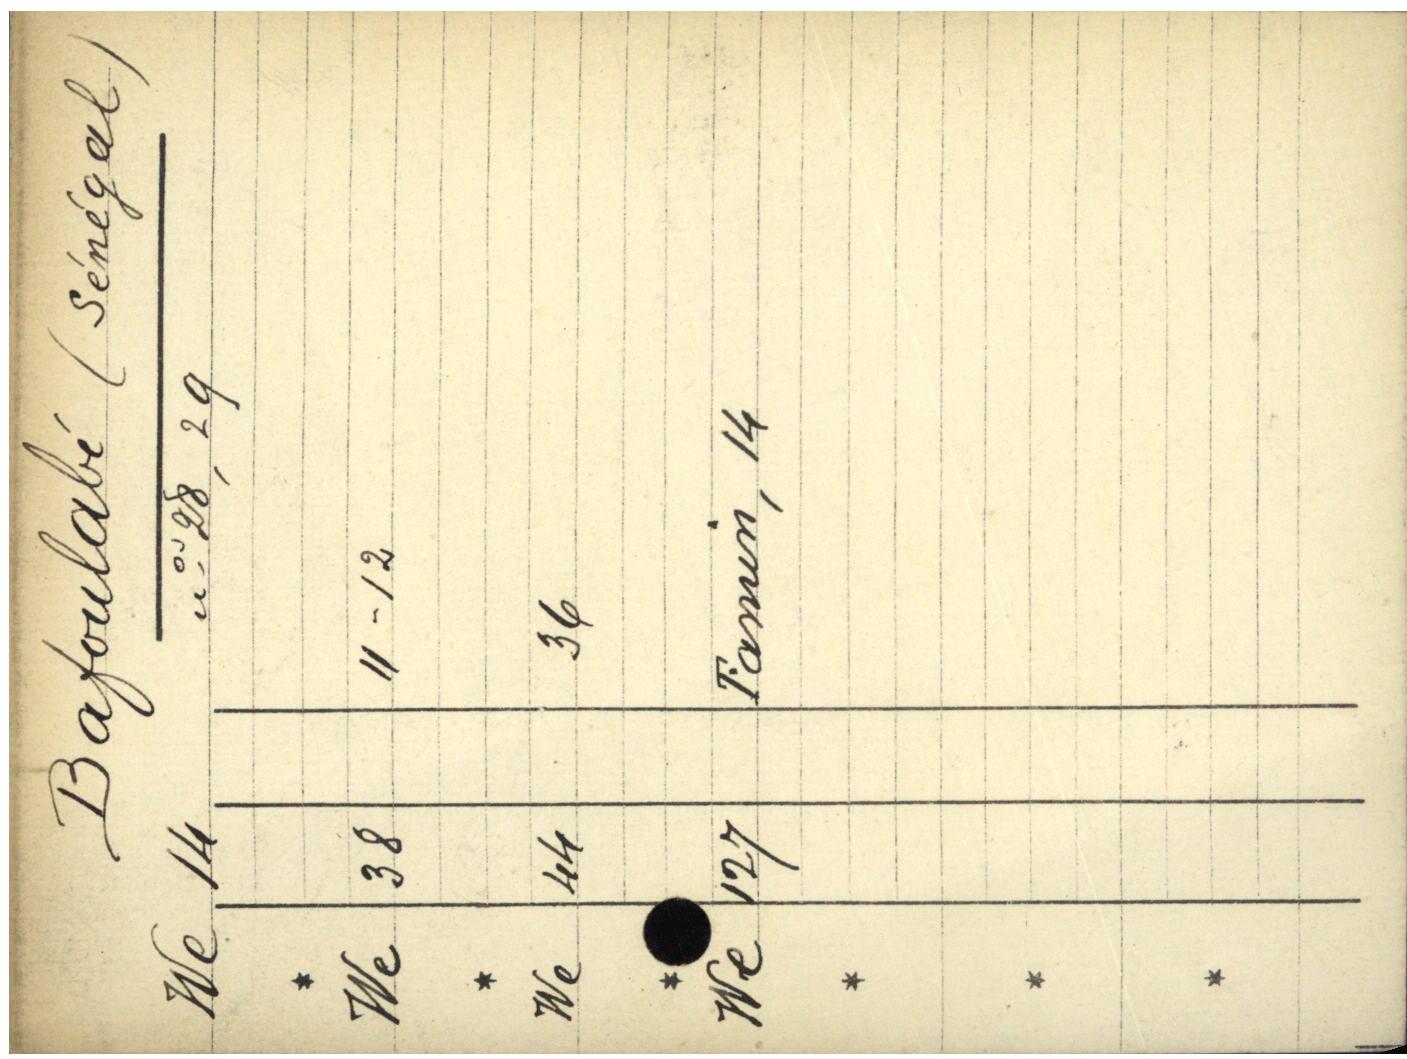 Bafoulabé (Sénégal)
We 14 nos 28, 29
*
We 38 11-12
*
We 44 36
*
We 127 Famin, 14
*
*
*